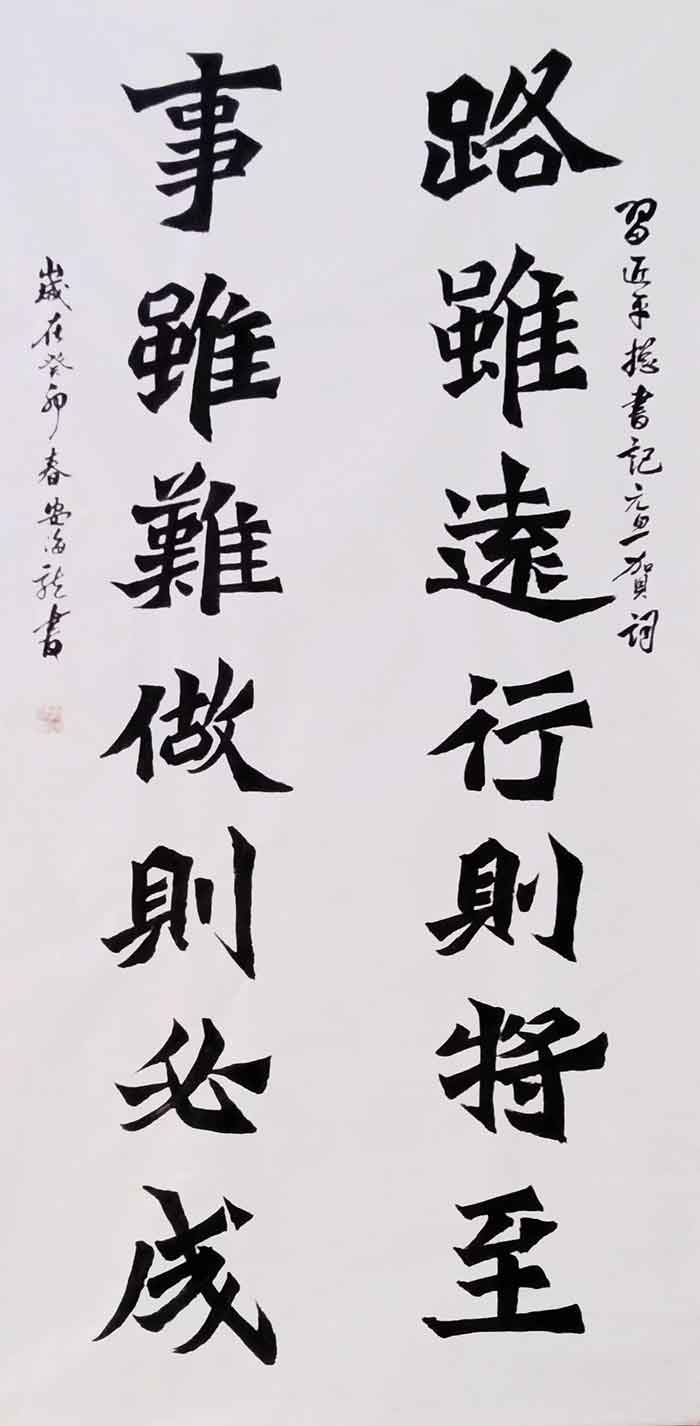 習近平總書記元旦賀詞
路雖遠行則將至
事雖難做則必成
歲在癸卯春安海龍書